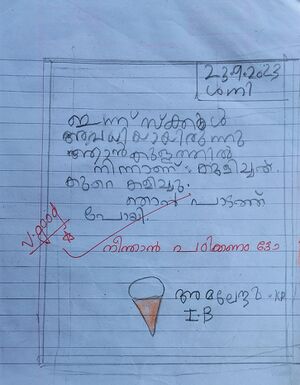 23.9.2023
ശനി
ഇന്ന് സ്ക്കൂൾ
അവധിയായിരുന്നു
ഞാൻ കുളത്തിൽ
നിന്നാണ് കുളിച്ചത്.
കുറെ കളിച്ചു.
ഞാൻ പാടത്ത്
പോയി.
v.good
നീന്താൻ പഠിക്കണം ട്ടോ
അമലേന്ദു. KP
I B